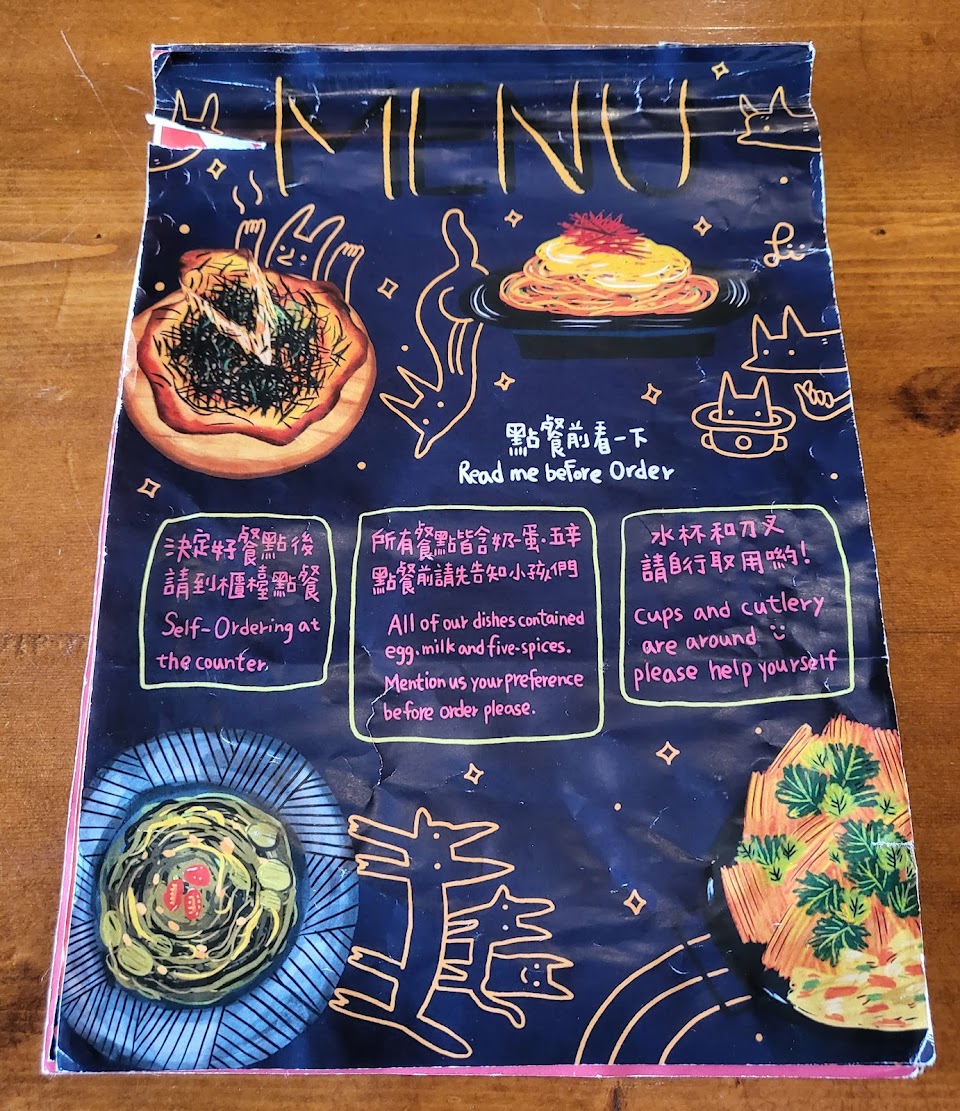 MENU
Li
點餐前看一下
Read me before Order
決定好餐點後
請到櫃檯點餐
Self-Ordering at
the counter.
所有餐點皆含奶·蛋·五辛
點餐前請先告知小孩們
All of our dishes contained
egg, milk and five-spices.
Mention us your preference
before order please.
水杯和刀叉
請自行取用喲!
Cups and cutlery
are around
please help yourself